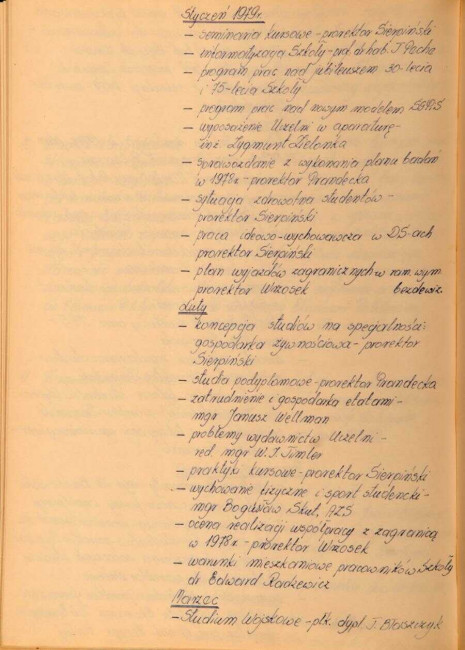 Styczeń 1979r.
- seminaria kursowe - prorektor Sierpiński
- informatyzacja Szkoły - prof. dr hab. T. Pache
- program prac nad jubileuszem 30-lecia
i 75-lecia Szkoły
- program prac nad nowym modelem SGPiS
- wyposażenie Uczelni w aparaturę -
inż. Zygmunt Zielonka
- sprawozdanie z wykonania planu badań
w 1978r. - prorektor Prandecka
- sytuacja zdrowotna studentów -
prorektor Sierpiński
- praca ideowo-wychowawcza w DS-ach
prorektor Sierpiński
- plan wyjazdów zagranicznych - w ram. wym.
prorektor Wrzosek bezdewiz.
Luty
- koncepcja studiów na specjalności:
gospodarka żywnościowa - prorektor
Sierpiński
- studia podyplomowe - prorektor Prandecka
- zatrudnienie i gospodarka etatami -
mgr Janusz Wellman
- problemy wydawnictw Uczelni -
red. mgr W. J. Timler
- praktyki kursowe - prorektor Sierpiński
- wychowanie fizyczne i sport studencki -
mgr Bogusław AZS
- ocena realizacji współpracy z zagranicą
w 1978r. - prorektor Wrzosek
- warunki mieszkaniowe pracowników Szkoły
dr Edward
Marzec
- Studium Wojskowe - płk. dypl. J. Błaszczyk